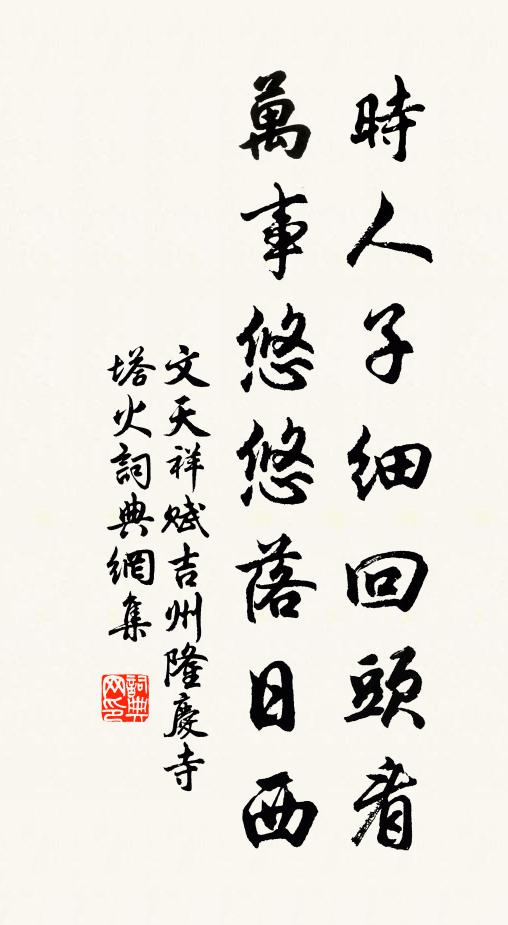 時人子細回頭看
萬事悠悠落日西
文天祥賦吉州隆慶寺
塔火詞典網集
詞典网印